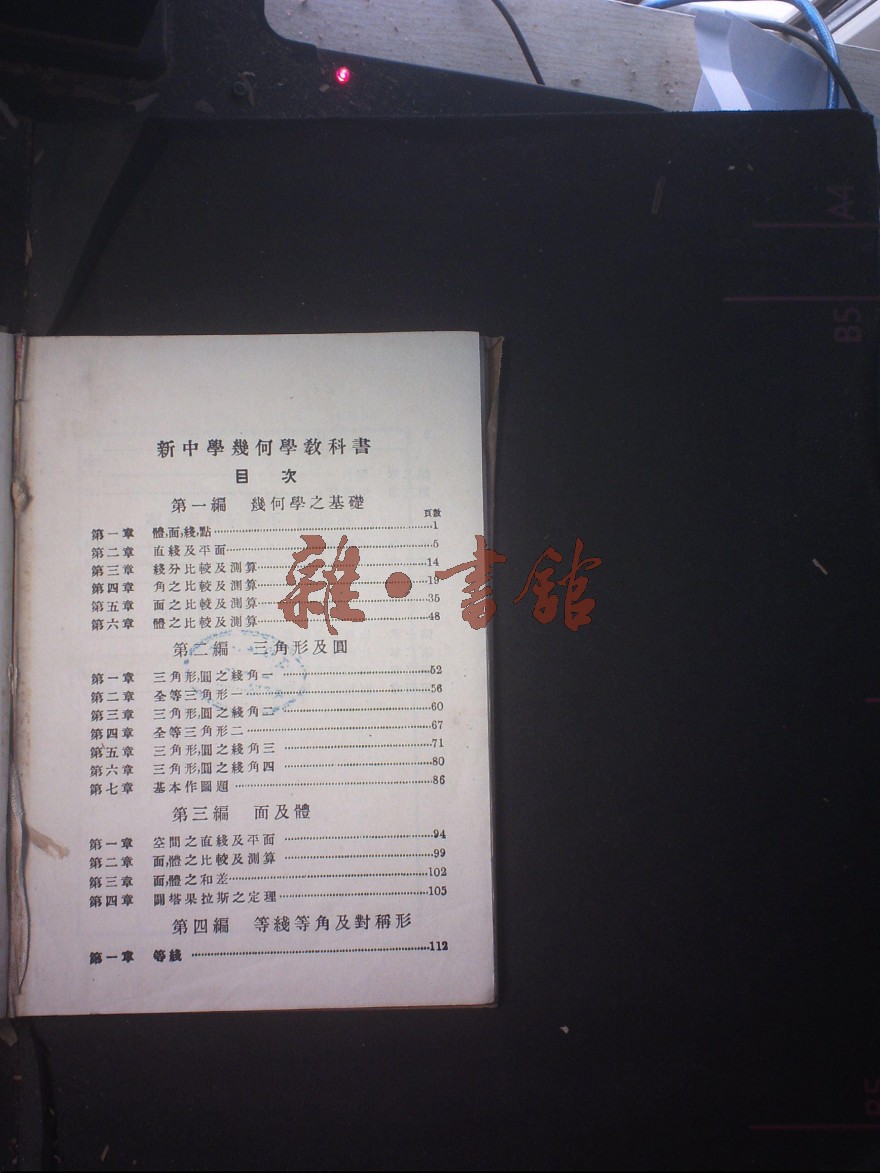 新中學幾何學教科書
目 次
第一編 幾何學之基礎
頁數
第一章 體,面,綫,點 1
第二章 直綫及平面 5
第三章 綫分比較及測算 14
第四章 角之比較及測算 19
第五章 面之比較及測算 35
第六章 體之比較及測算 48
第二編 三角形及圓
第一章 三角形,圓之綫角一 52
第二章 全等三角形一 56
第三章 三角形,圓之綫角二 60
第四章 全等三角形二 67
第五章 三角形,圓之綫角三 71
第六章 三角形,圓之綫角四 80
第七章 基本作圖題 86
第三編 面及體
第一章 空間之直綫及平面 94
第二章 面,體之比較及測算 99
第三章 面,體之和差 102
第四章 闢塔果拉斯之定理 105
第四編 等綫等角及對稱形
第一章 等綫 112
雜·書館
A4
B5